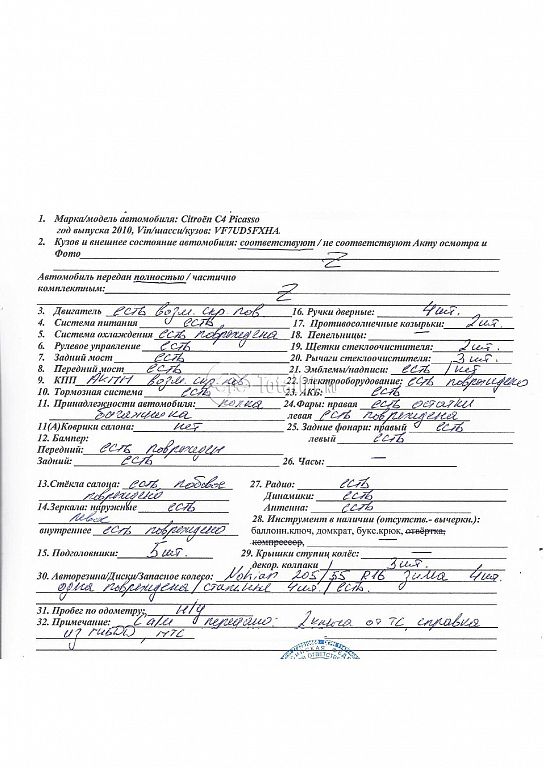 1. Марка/модель автомобиля: Citroën C4 Picasso
год выпуска 2010, Vin/шасси/кузов: VF7UD5FXHA
2. Кузов и внешнее состояние автомобиля: соответствуют / не соответствуют Акту осмотра и
Фото Z
Автомобиль передан полностью / частично
комплектным: Z
3. Двигатель есть возм. скр. пов 16. Ручки дверные: 4 шт.
4. Система питания есть 17. Противосолнечные козырьки: 2 шт.
5. Система охлаждения есть повреждена 18. Пепельницы: —
6. Рулевое управление есть 19. Щетки стеклоочистителя: 2 шт.
7. Задний мост есть 20. Рычаги стеклоочистителя: 3 шт.
8. Передний мост есть 21. Эмблемы/надписи: есть 1 шт
9. КПП АКПП возм. скр. пов 22. Электрооборудование: есть повреждено
10. Тормозная система есть 23. АКБ: есть
11. Принадлежности автомобиля: полка 24. Фары: правая есть остатки
багажника левая есть повреждена
11(А)Коврики салона: нет 25. Задние фонари: правый есть
12. Бампер: левый есть
Передний: есть поврежден
Задний: есть 26. Часы: —
13.Стёкла салона: есть, лобовое 27. Радио: есть
повреждено Динамики: есть
14.Зеркала: наружные есть Антенна: есть
левое 28. Инструмент в наличии (отсутств.- вычеркн.):
внутреннее есть повреждено баллонн.ключ, домкрат, букс.крюк, отвёртка,
компрессор,
15. Подголовники: 5 шт. 29. Крышки ступиц колёс: —
декор. колпаки 3 шт.
30. Авторезина/Диски/Запасное колесо: Nokian 205/55 R16 Зима 4 шт.
одна повреждена / 4 шт. / есть.
31. Пробег по одометру: н/у
32. Примечание: передано: 2 ключа от ТС, справка
из ГИБДД, ПТС